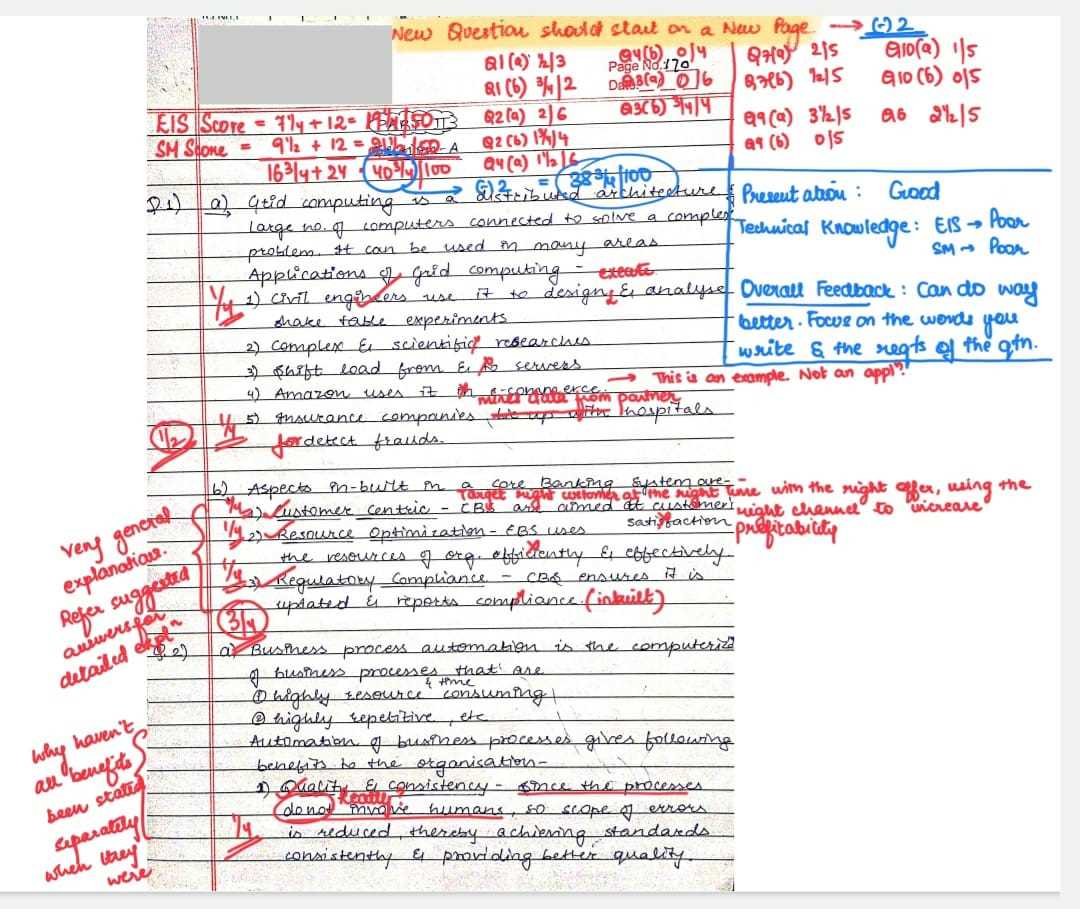 New Question should start on a New Page → (-) 2
Q1 (a) 1/2/3
Q1 (b) 3/4/2
Q2 (a) 2/6
Q2 (b) 1 3/4/4
Q4 (a) 1 1/2/6
Q4(b) 0/4
Page No. 170
Q3(a) 0/6
Q3(b) 3/4/4
Q7(a) 2/5
Q7(b) 1/2/5
Q9(a) 3 1/2/5
Q9 (b) 0/5
Q10(a) 1/5
Q10 (b) 0/5
Q6 2 1/2/5
EIS Score = 7 1/4 + 12 = 19 1/4/50
SM Score = 9 1/2 + 12 = 21 1/2/50
16 3/4 + 24 40 3/4/100
→ (-) 2 = 38 3/4/100
Presentation : Good
Technical Knowledge : EIS → Poor
SM → Poor
Overall Feedback : Can do way
better. Focus on the words you
write & the reqts of the qtn.
Q.1) a) Grid computing is a distributed architecture of
large no. of computers connected to solve a complex
problem. It can be used in many areas
Applications of grid computing -
execute
1/4 1) Civil engineers use it to design & analyse
shake table experiments
2) Complex & scientific researches
3) Shift load from & to servers
→ This is an example. Not an appln.
4) Amazon uses it in e-commerce.
mines data from partner
1/2 1/4 5) Insurance companies tie up with hospitals
for detect frauds.
b) Aspects in-built in a Core Banking System are-
Target right customer at the right time with the right offer, using the
right channel to increase
profitability
1/4 1) Customer centric - CBS are aimed at customer
satisfaction
1/4 2) Resource Optimization - CBS uses
the resources of org. efficiently & effectively.
1/4 3) Regulatory Compliance - CBS ensures it is
updated & reports compliance. (inbuilt)
3/4
very general
explanations.
Refer suggested
answers for
detailed expln
Q.2) a) Business process automation is the computeriz
of business processes that are
① highly resource & time consuming
② highly repetitive, etc
Automation of business processes gives following
benefits to the organisation-
1) Quality & consistency - Since the processes
Really?
do not involve humans, so scope of errors
1/4 is reduced, thereby achieving standards
consistently & providing better quality.
why haven't
all benefits
been stated
separately
when they
were